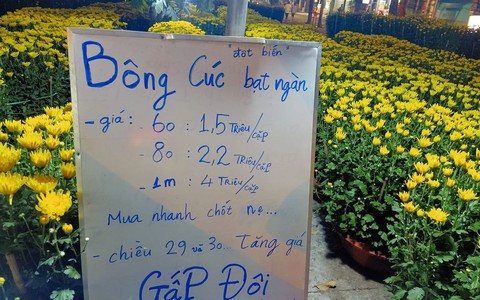 "đột biến"
Bông Cúc bạt ngàn
- giá: 60 : 1,5 Triệu/cặp
80 : 2,2 Triệu/cặp
- 1m : 4 Triệu/cặp
Mua nhanh chốt nẹ...
- chiều 29 và 30... Tăng giá
GẤP ĐÔI